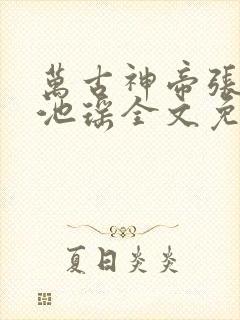 萬古神帝張
池瑤全文免
夏日炎炎